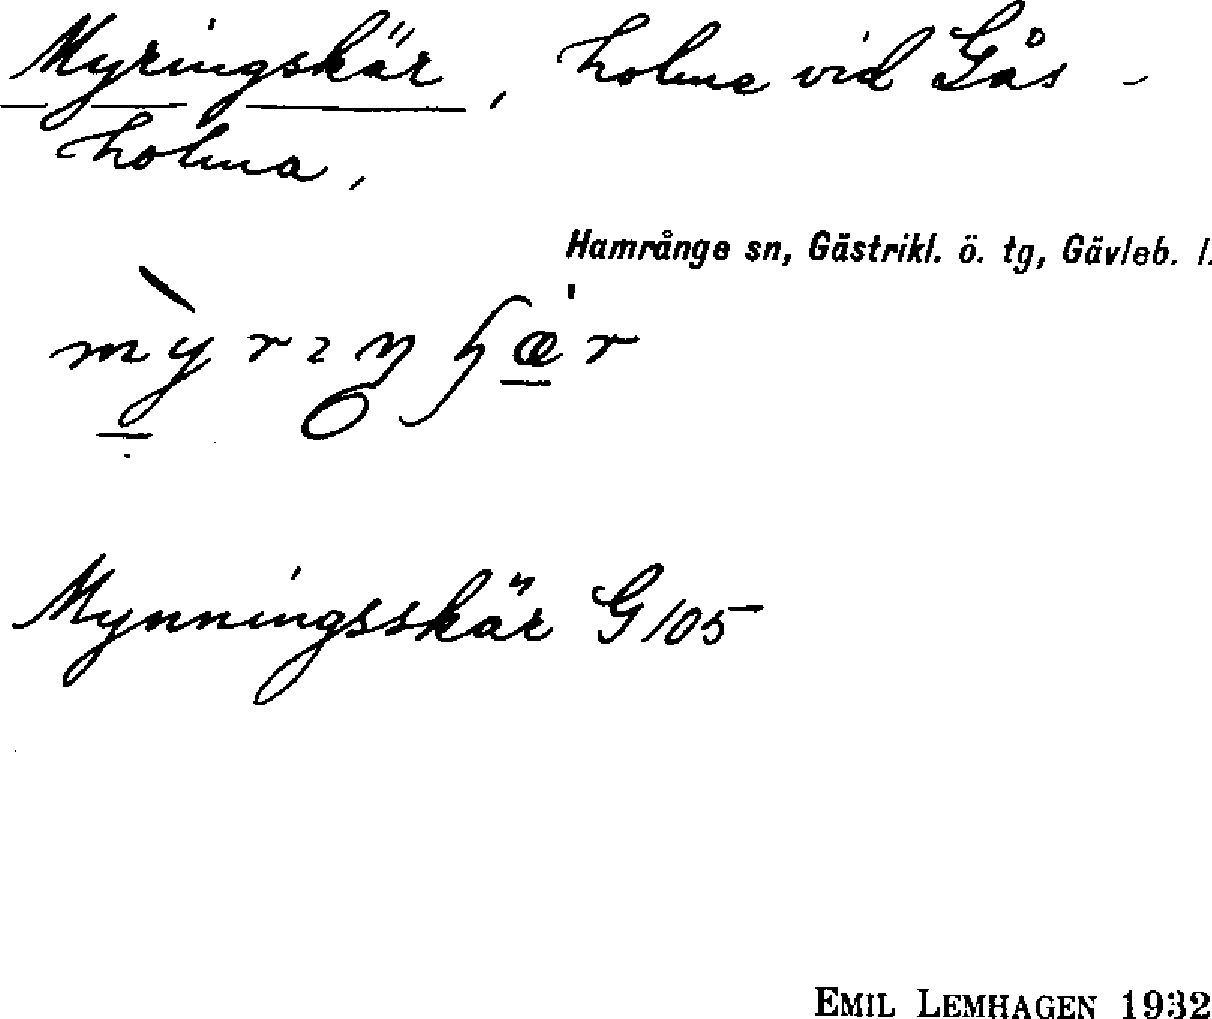 Myringskär, holme vid Gås-
holma,
Hamrånge sn, Gästrikl. ö. tg, Gävleb. l.
Mynningsskär G 105
EMIL LEMHAGEN 1932